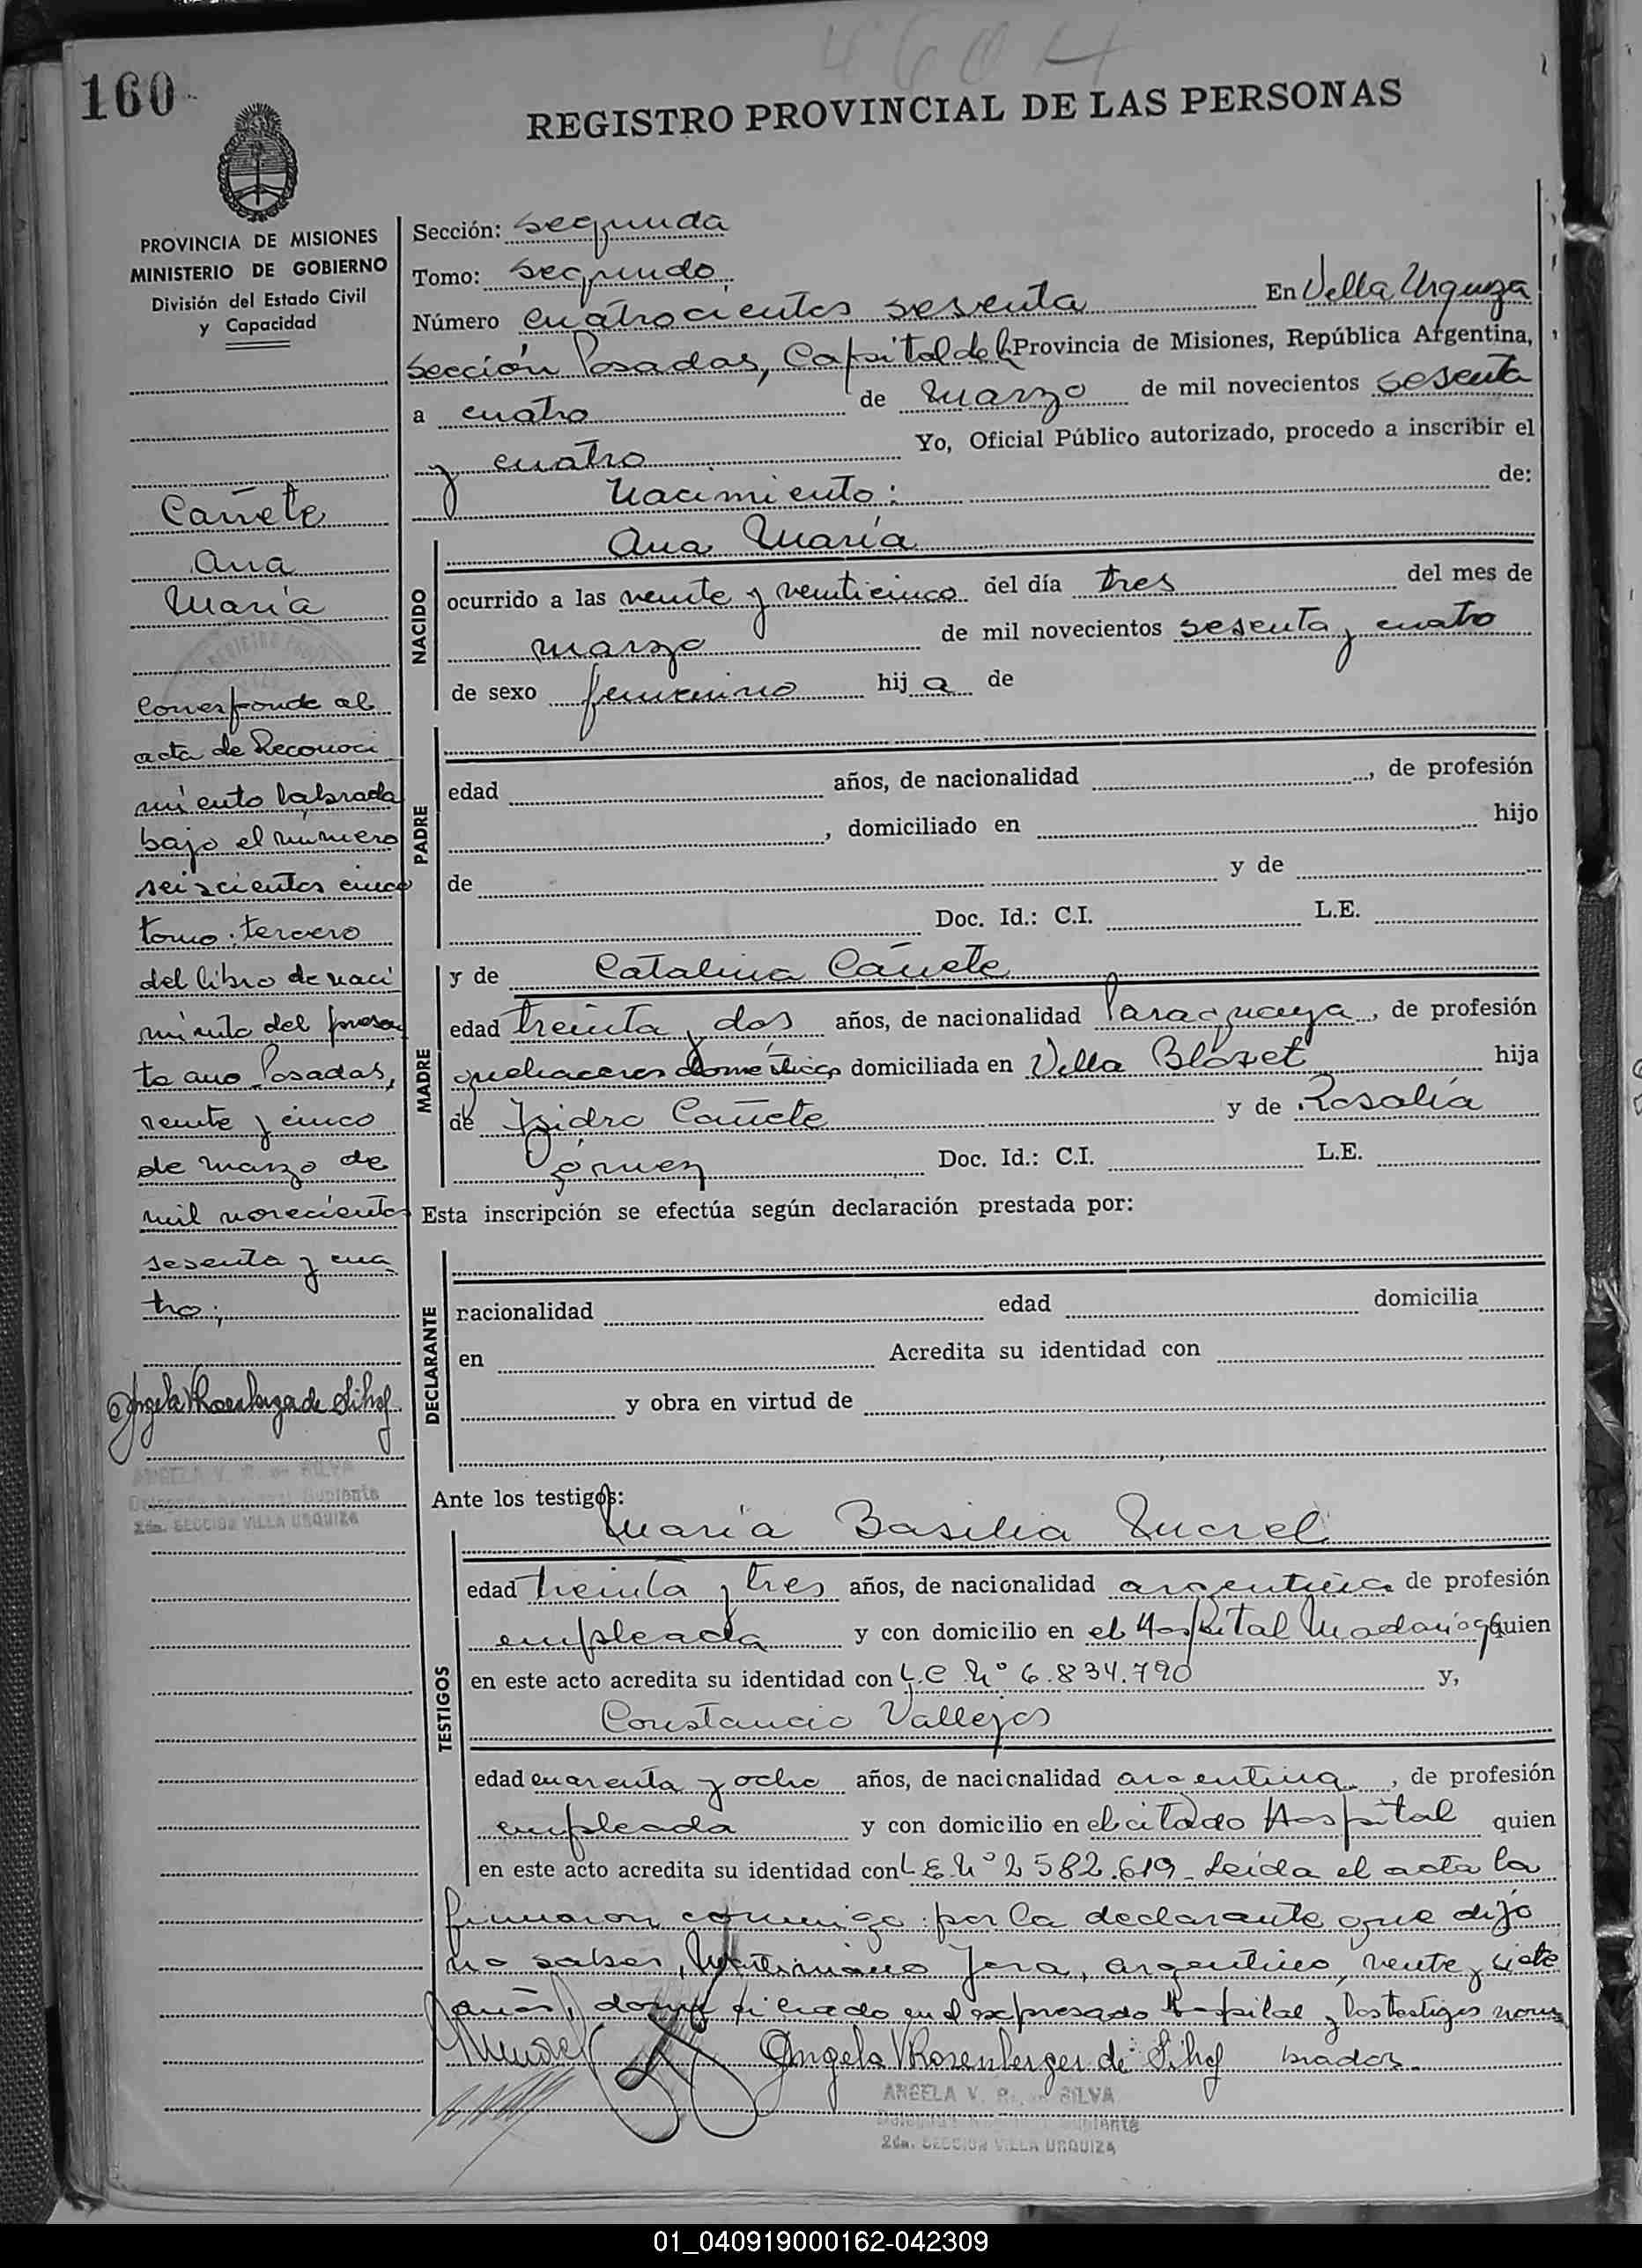 160
4604
REGISTRO PROVINCIAL DE LAS PERSONAS
PROVINCIA DE MISIONES
MINISTERIO DE GOBIERNO
División del Estado Civil
y Capacidad
Cañete
Ana
María
Corresponde al
acta de Reconoci
miento labrada
bajo el numero
seiscientos cinco
tomo tercero
del libro de naci
miento del presen
te año Posadas,
veinte y cinco
de marzo de
mil novecientos
sesenta y cua
tro;
ANGELA V. R. de SILVA
Suplente
2da. SECCION VILLA URQUIZA
Sección: segunda
Tomo: segundo
Número cuatrocientos sesenta En Villa Urquiza
sección Posadas, Capital de la Provincia de Misiones, República Argentina,
a cuatro de Marzo de mil novecientos sesenta
y cuatro Yo, Oficial Público autorizado, procedo a inscribir el
Nacimiento: de:
NACIDO
Ana María
ocurrido a las veinte y veinticinco del día tres del mes de
marzo de mil novecientos sesenta y cuatro
de sexo femenino hij a de
PADRE
edad años, de nacionalidad , de profesión
, domiciliado en hijo
de y de
Doc. Id.: C.I. L.E.
MADRE
y de Catalina Cañete
edad treinta y dos años, de nacionalidad Paraguaya, de profesión
quehaceres domésticos domiciliada en Villa Blóset hija
de Isidro Cañete y de Rosalía
Gómez Doc. Id.: C.I. L.E.
Esta inscripción se efectúa según declaración prestada por:
DECLARANTE
nacionalidad edad domicilia
en Acredita su identidad con
y obra en virtud de
Ante los testigos:
TESTIGOS
María Basilia
edad treinta y tres años, de nacionalidad argentina de profesión
empleada y con domicilio en el Hospital Madariaga quien
en este acto acredita su identidad con L.C Nº 6.834.790 y,
Constancio Vallejos
edad cuarenta y ocho años, de nacionalidad argentina, de profesión
empleada y con domicilio en el citado Hospital quien
en este acto acredita su identidad con L E. Nº 2 582.619 - Leída el acta la
firmaron conmigo por la declarante que dijo
no saber, Jara, argentino, veinte y siete
años, domiciliado en el expresado Hospital y los testigos nom
brados.
Angela V Rosenberger de Silva
ANGELA V. R. de SILVA
Suplente
2da. SECCION VILLA URQUIZA
01_040919000162-042309